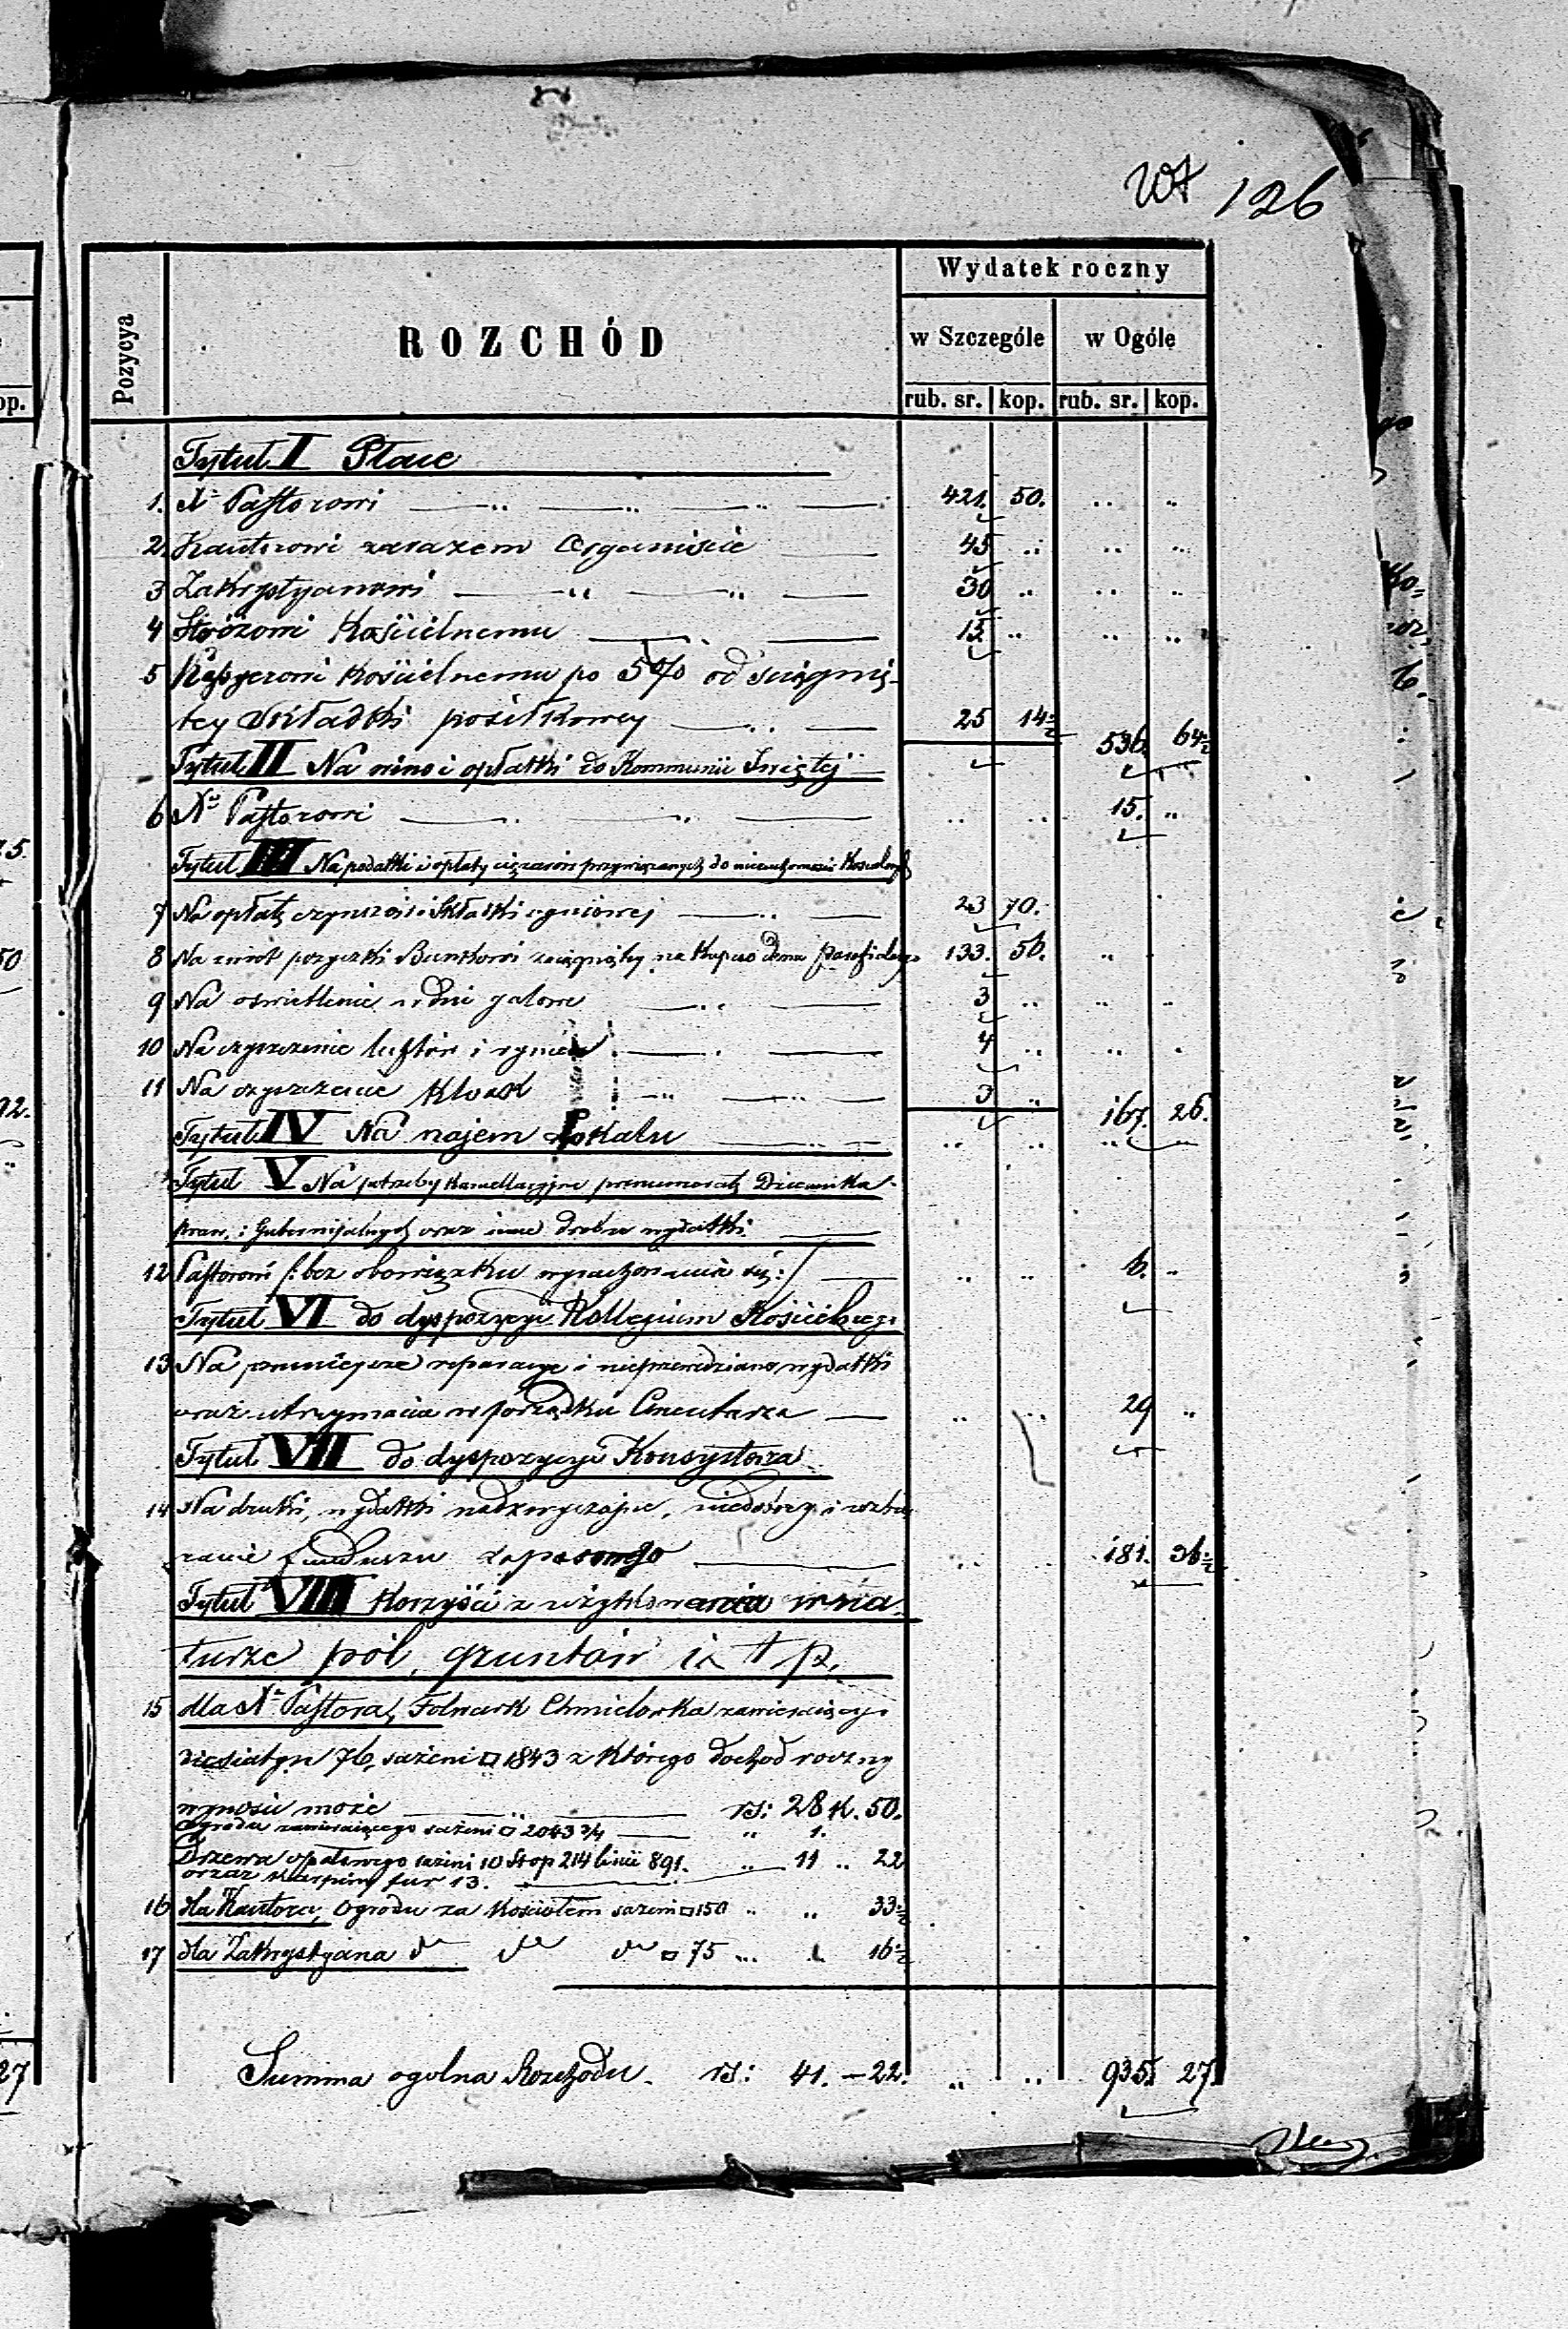 126
Wydatek roczny
Pozycya ROZCHÓD w Szczególe w Ogóle
rub. sr. kop. rub. sr. kop.
Tytuł I Płace
1. Xu Pastorowi 421. 50. „ „
2. Kantorowi zarazem Organiście 45 „ „ „
3 Zakrystyanowi 30 „ „ „
4 Stróżowi Kościelnemu 15 „ „ „
5 Kassyerowi Kościelnemu po 5% od ściągnię-
tey składki posiłkowey 25 14½ 536. 64½
Tytuł II Na wino i opłatki do Kommunii Świętej
6 Xu Pastorowi „ „ 15. „
Tytuł III Na podatki i opłaty ciężarów przywiązanych do nieruchomości Kościelnych
7 Na opłatę czynszów i Składki ogniowej 23 70.
8 Na zwrot pożyczki Bankowi zaciągniętey na kupno domu parafialnego 133. 56. „
9 Na oświetlenie w dni galowe 3 „ „ „
10 Na czyszczenie luftów i rynien 4 „ „ „
11 Na czyszczenie kloak 3 „ 167. 26.
Tytuł IV Na najem Lokalu „ „ „ „
Tytuł V Na potrzeby kancellaryjne prenumeratę Dziennika
praw, i Gubernijalnych oraz inne drobne wydatki
12 Pastorowi /: bez obowiązku wyrachowania się :/ „ „ 6. „
Tytuł VI do dyspozycyi Kollegium Kościelnego
13 Na pomniejsze reparacye i nieprzewidziane wydatki
oraz utrzymanie w porządku Cmentarza „ „ 29 „
Tytuł VII do dyspozycyi Konsystorza
14 Na druki, wydatki nadzwyczajne, niedobory i
funduszu zapasowego „ „ 181. 36½
Tytuł VIII Korzyści z użytkowania w na
turze pól, gruntów i t p.
15 dla Xa Pastora, Folwark Chmielówka zawierający
dziesiatyn 76, sażeni □ 1843 z którego dochód roczny
wynosić może rs: 28 k. 50.
Ogrodu zawierającego sażeni □ 2043 ¾ „ 1.
Drzewa opałowego sażeni 10 Stop 214 linii 891. „ 11 „ 22
oraz karpiny fur 13.
16 dla Kantora, Ogrodu za Kościołem sażeni □ 150 „ „ 33½
17 dla Zakrystyana do do do □ 75 „ „ 16½
Summa ogólna Rozchodu. rs: 41. – 22. „ „ 935. 27.